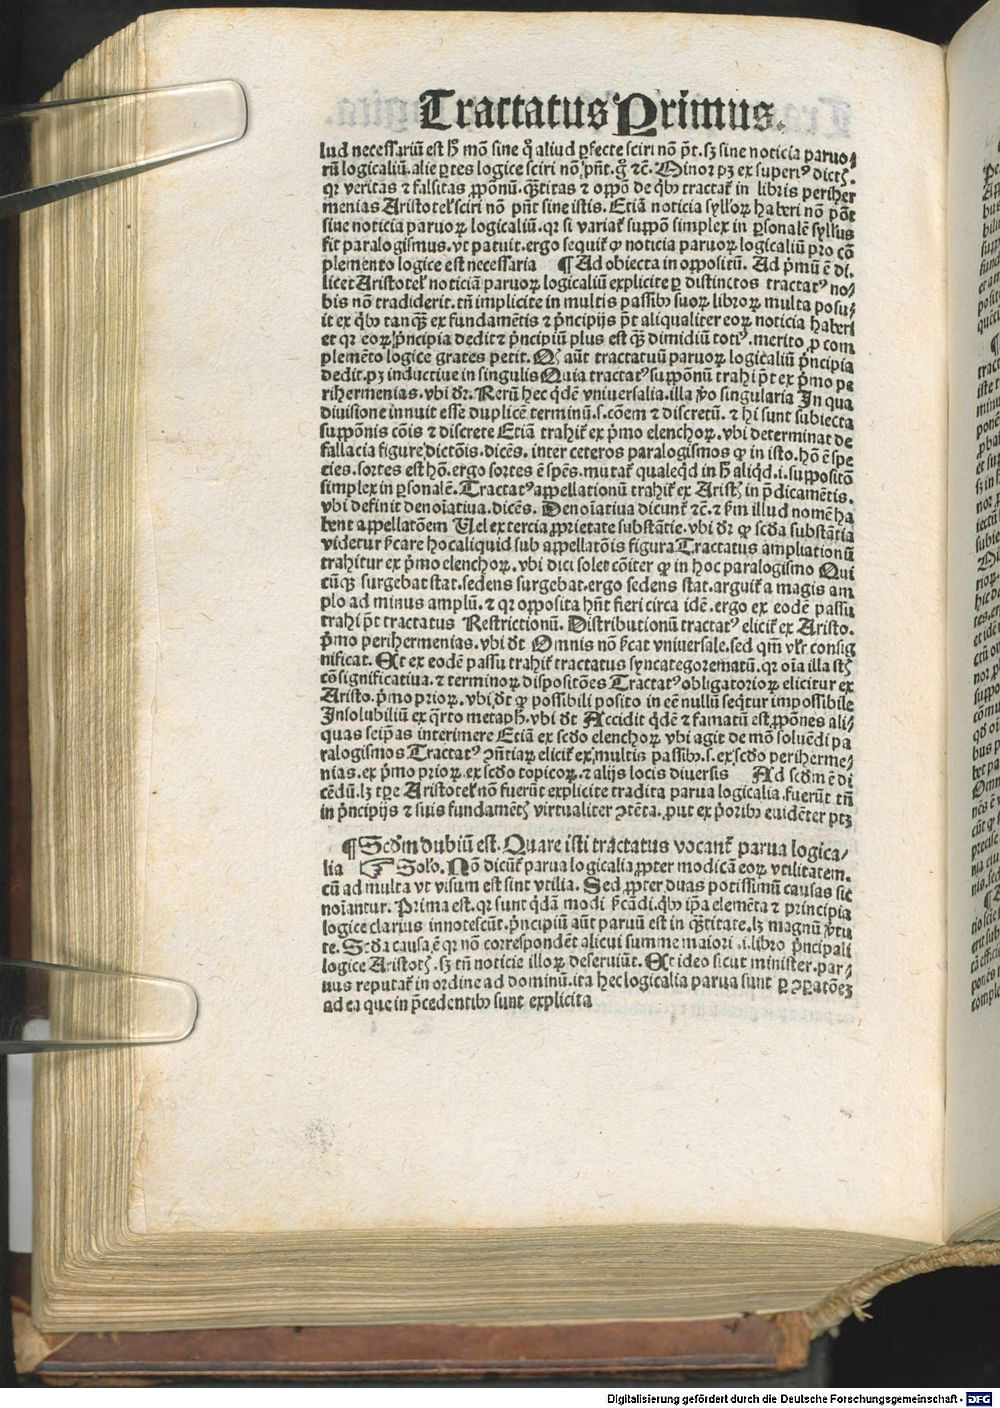 Tractatus Primus.
lud necessariū est h̄ mō sine q̊ aliud ꝑfecte sciri nō pōt. sꝫ sine noticia paruo⸗
rū logicaliū. alie ꝑtes logice sciri nō pn̄t. gͦ ⁊c̄. Minor pꝫ ex superiꝰ dict.
qꝛ veritas ⁊ falsitas ꝓpōnū. q̄titas ⁊ oppō de qͥbꝰ tractat̄ in libris periher
menias Aristotel̄ sciri nō pn̄t sine istis. Etiā noticia syllo⁊ haberi nō pōt
sine noticia paruoꝝ logicaliū. qꝛ si variat̄ suppō simplex in ꝑsonalē syllus
fit paralogismus. vt patuit. ergo sequit̄ ꝙ noticia paruoꝝ logicaliū pro cō
plemento logice est necessaria ¶ Ad obiecta in oppositū. Ad pͥmū ē di.
licet Aristotel̄ noticiā paruoꝝ logicaliū explicite ꝑ distinctos tractatꝰ no⸗
bis nō tradiderit. tn̄ implicite in multis passibꝰ suoꝝ libroꝝ multa posu⸗
it ex qͥbꝰ tanqꝫ ex fundamētis ⁊ pͥncipijs pōt aliqualiter eoꝝ noticia haberi
et qꝛ eoꝝ pͥncipia dedit ⁊ pͥncipiū plus est qꝫ dimidiū totiꝰ. merito ꝓ com
plemēto logice grates petit. aūt tractatuū paruoꝝ logicaliū pͥncipia
dedit. pꝫ inductiue in singulis Quia tractatꝰ suppōnū trahi pōt ex pͥmo pe
rihermenias. vbi dr̄. Rerū hec qͥdē vniuersalia. illa ꝟo singularia In qua
diuisione innuit esse duplicē terminū. s. cōem ⁊ discretū. ⁊ hi sunt subiecta
suppōnis cōis ⁊ discrete Etiā trahit̄ ex pͥmo elenchoꝝ. vbi determinat de
fallacia figure dictōis. dicēs. inter ceteros paralogismos ꝙ in isto. hō ē spe
cies. sortes est hō. ergo sortes ē spēs. mutat̄ qualeqͥd in h̄ aliqͥd. i. suppositō
simplex in ꝑsonalē. Tractatꝰ appellationū trahit̄ ex Arist. in p̄dicamētis.
vbi definit denoīatiua. dicēs. Denoīatiua dicunt̄ ⁊c̄. ⁊ ẜm illud nomē ha
bent appellatōem Uel ex tercia ꝓprietate substātie. vbi dr̄ ꝙ scd̄a substātia
videtur ẜcare hocaliquid sub appellatōis figura Tractatus ampliationū
trahitur ex pͥmo elenchoꝝ. vbi dici solet cōiter ꝙ in hoc paralogismo Qui
cūqꝫ surgebat stat. sedens surgebat. ergo sedens stat. arguit̄ a magis am
plo ad minus amplū. ⁊ qꝛ opposita hn̄t fieri circa idē. ergo ex eodē passu
trahi pōt tractatus Restrictionū. Distributionū tractatꝰ elicit̄ ex Aristo.
pͥmo perihermenias. vbi dt̄ Omnis nō ẜcat vniuersale. sed qm̄ vl̄r consig
nificat. Et ex eodē passu trahit̄ tractatus syncategorematū. qꝛ oīa illa st̄
cōsignificatiua. ⁊ terminoꝝ dispositōes Tractatꝰ obligatorioꝝ elicitur ex
Aristo. pͥmo prioꝝ. vbi dt̄ ꝙ possibili posito in eē nullū seqͥtur impossibile
Insolubiliū ex qͣrto metaph̄. vbi dt̄ Accidit qͥdē ⁊ famatū est ꝓpōnes ali⸗
quas seip̄as interimere Etiā ex scd̄o elenchoꝝ vbi agit de mō soluēdi pa
ralogismos Tractatꝰ ꝯn̄tiaꝝ elicit̄ ex multis passibꝰ. s. ex scd̄o periherme⸗
nias. ex pͥmo prioꝝ. ex scd̄o topicoꝝ. ⁊ alijs locis diuersis Ad scd̄m ē di
cēdū. lꝫ tꝑe Aristotel̄ nō fuerūt explicite tradita parua logicalia. fuerūt tn̄
in pͥncipijs ⁊ suis fundamēt. virtualiter ꝯtēta. ꝓut ex pͥoribꝰ euidēter ptꝫ
¶ Scd̄m dubiū est. Quare isti tractatus vocant̄ parua logica⸗
lia ☞ Solo. Nō dicūt̄ parua logicalia ꝓpter modicā eoꝝ vtilitatem.
cū ad multa vt visum est sint vtilia. Sed ꝓpter duas potissimū causas sic
noīantur. Prima est. qꝛ sunt qͥdā modi ẜcādi. qͥbꝰ ip̄a elemēta ⁊ principia
logice clarius innotescūt. pͥncipiū aūt paruū est in q̄titate. lꝫ magnū ꝟtu
te. Scd̄a causa ē qꝛ nō correspondēt alicui summe maiori .i. libro pͥncipali
logice Aristot. sꝫ tn̄ noticie illoꝝ deseruiūt. Et ideo sicut minister. par⸗
uus reputat̄ in ordine ad dominū. ita hec logicalia parua sunt ꝑ ꝯꝑatōeꝫ
ad ea que in p̄cedentibꝰ sunt explicita
Digitalisierung gefördert durch die Deutsche Forschungsgemeinschaft - DFG